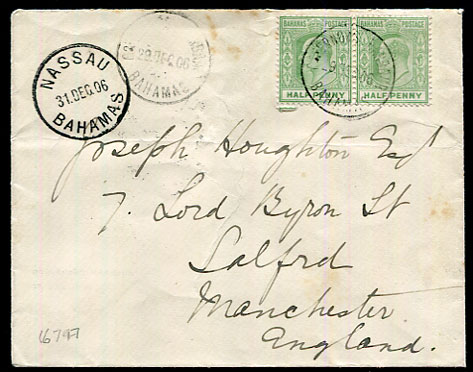 NASSAU
31.DEC.06
BAHAMAS
29 DEC.06
BAHAMAS
BAHAMAS POSTAGE
HALF PENNY
BAHAMAS POSTAGE
HALF PENNY
BAHAMAS
Joseph Houghton Esq
7. Lord Byron St
Salford
Manchester
England.
16797